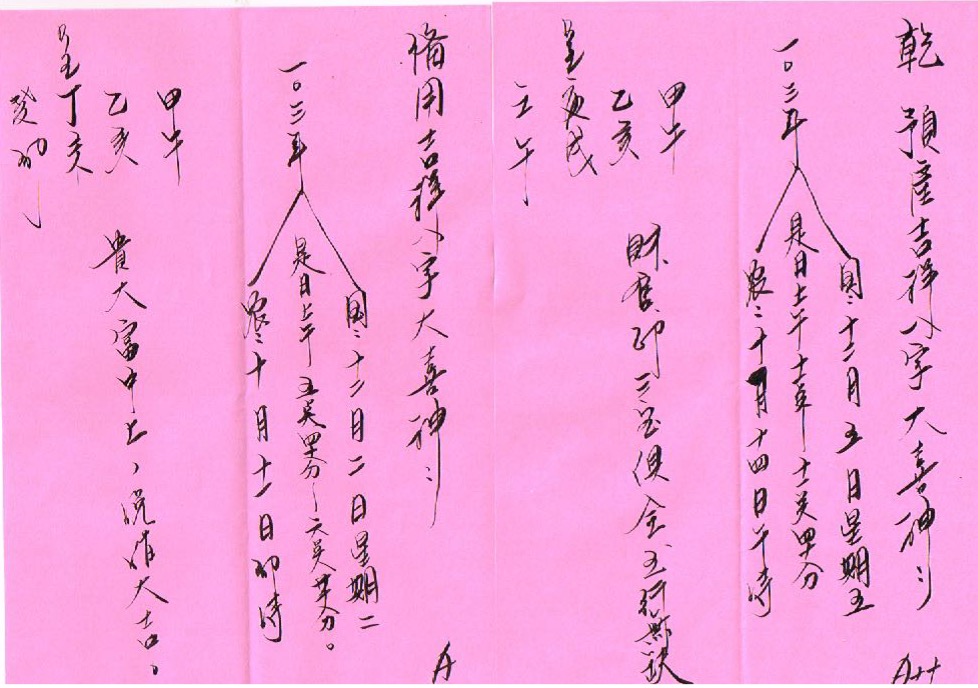 乾 預產吉祥八字大喜神〻
一〇三年
國〻十二月五日星期五
是日上午
農〻十月十四日午時
甲午
乙亥
壬午
財官印三宝俱全五行無缺
A++
備用吉祥八字大喜神〻
一〇三年
國〻十二月二日星期二
是日上午五点四十分~六点廿分。
農〻十月十一日卯時
甲午
乙亥
丁亥
癸卯
貴大富中上、大吉。
A